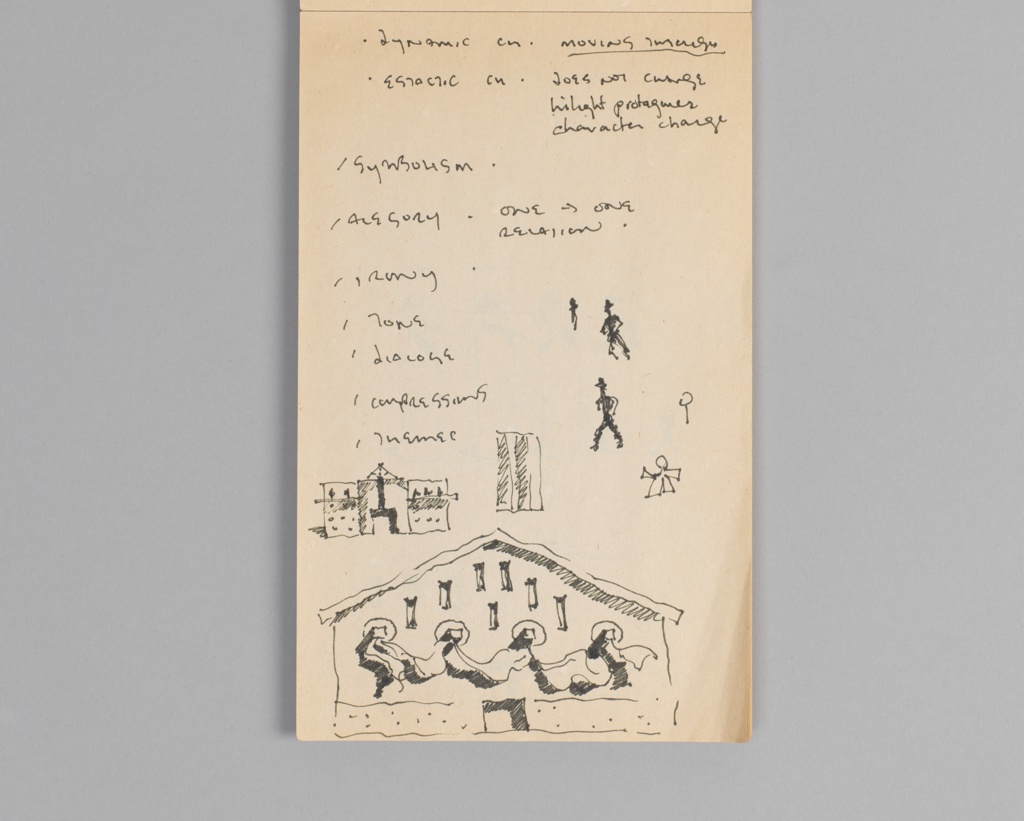 · DYNAMIC CH · MOVING
· ESTACTIC CH · DOES NOT CHANGE
hilight protagones
character change
/ SYMBOLISM ·
/ ALEGORY · ONE → ONE
RELATION ·
/ IRONY ·
/ TONE
/ DIALOGE
/ COMPRESSIONS
/ THEMES